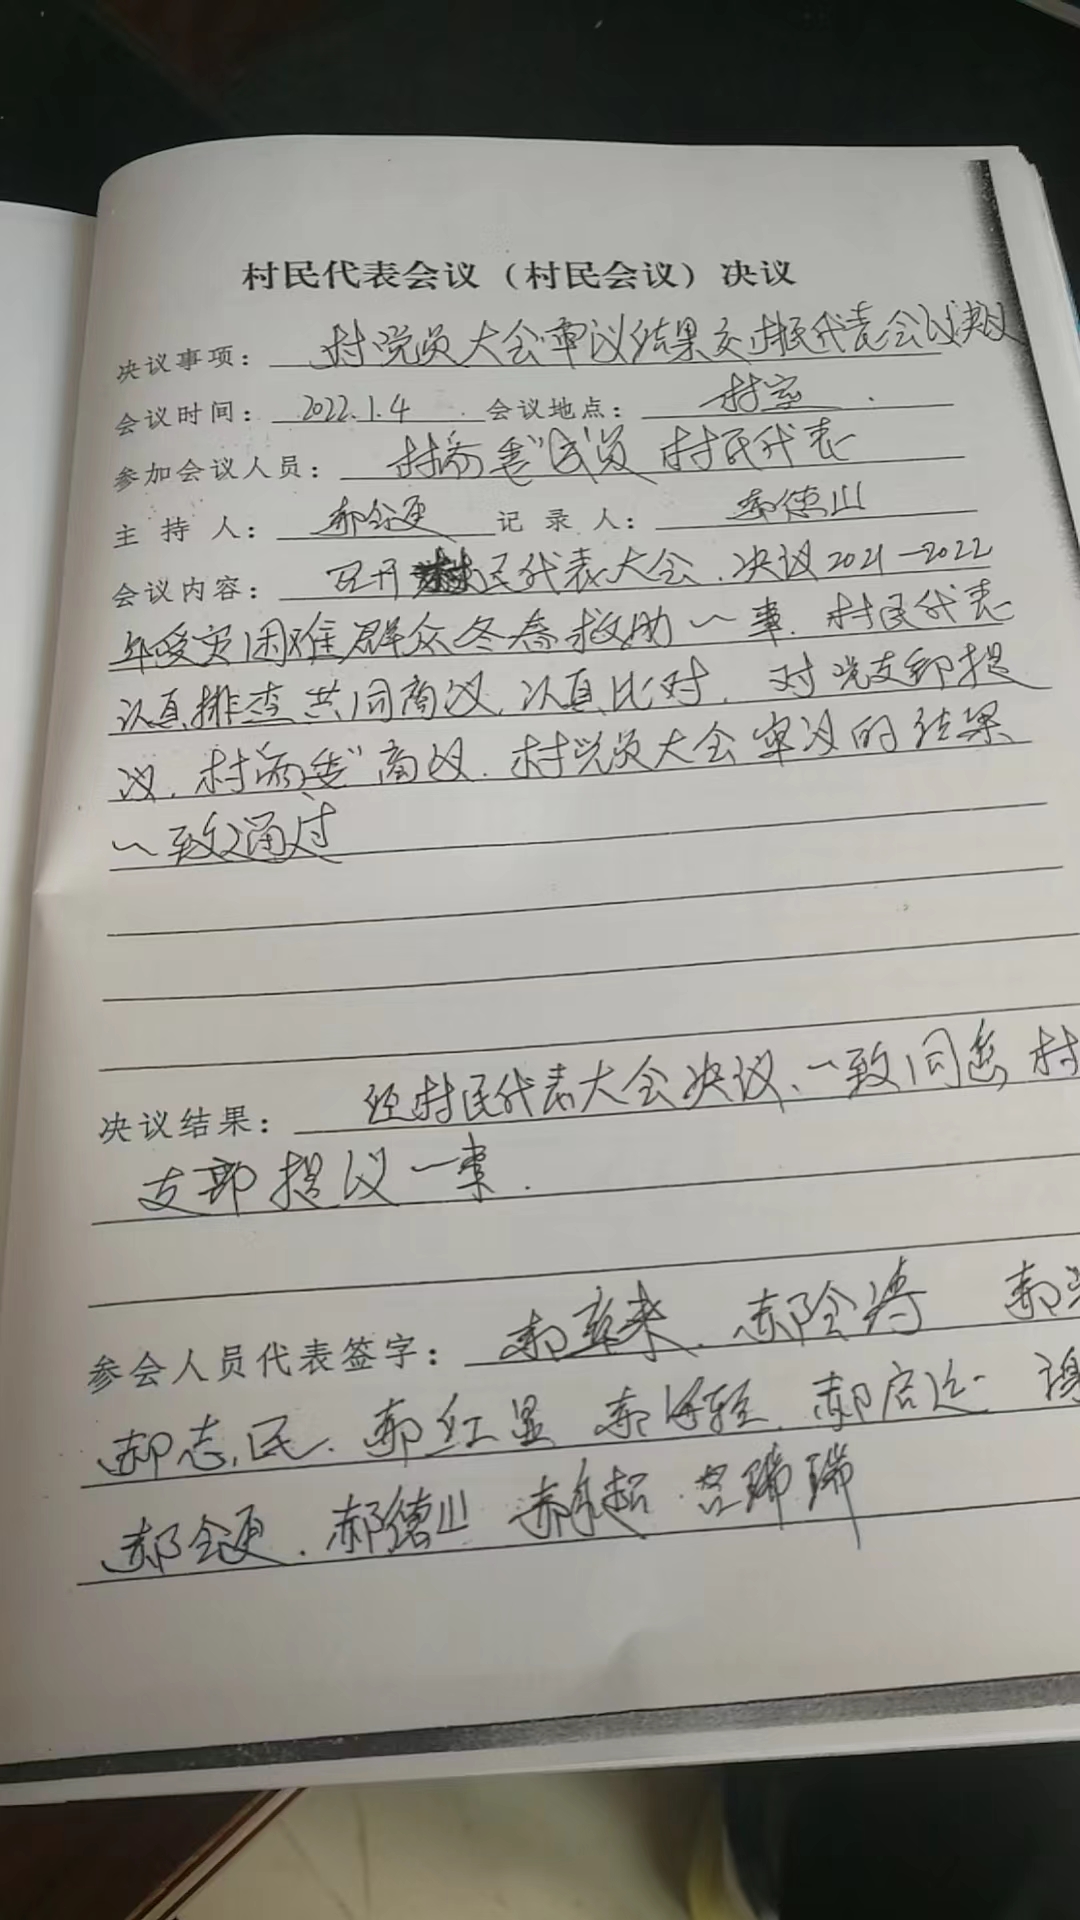 村民代表会议（村民会议）决议
决议事项： 村党员大会审议结果交村民代表会议决议
会议时间： 2022.1.4 会议地点： 村室
参加会议人员： 村"两委"成员 村民代表
主 持 人： 郝全更 记 录 人： 郝德山
会议内容： 召开村民代表大会、决议2021—2022
年受灾困难群众冬春救助一事. 村民代表
认真排查共同商议, 认真比对, 对党支部提
议, 村"两委"商议, 村党员大会审议的结果
一致通过
决议结果： 经村民代表大会决议、一致同意 村
支部提议一案.
参会人员代表签字： 郝 郝 郝
郝志民. 郝红显 郝海轻. 郝启
郝全更. 郝德山 郝 瑞瑞